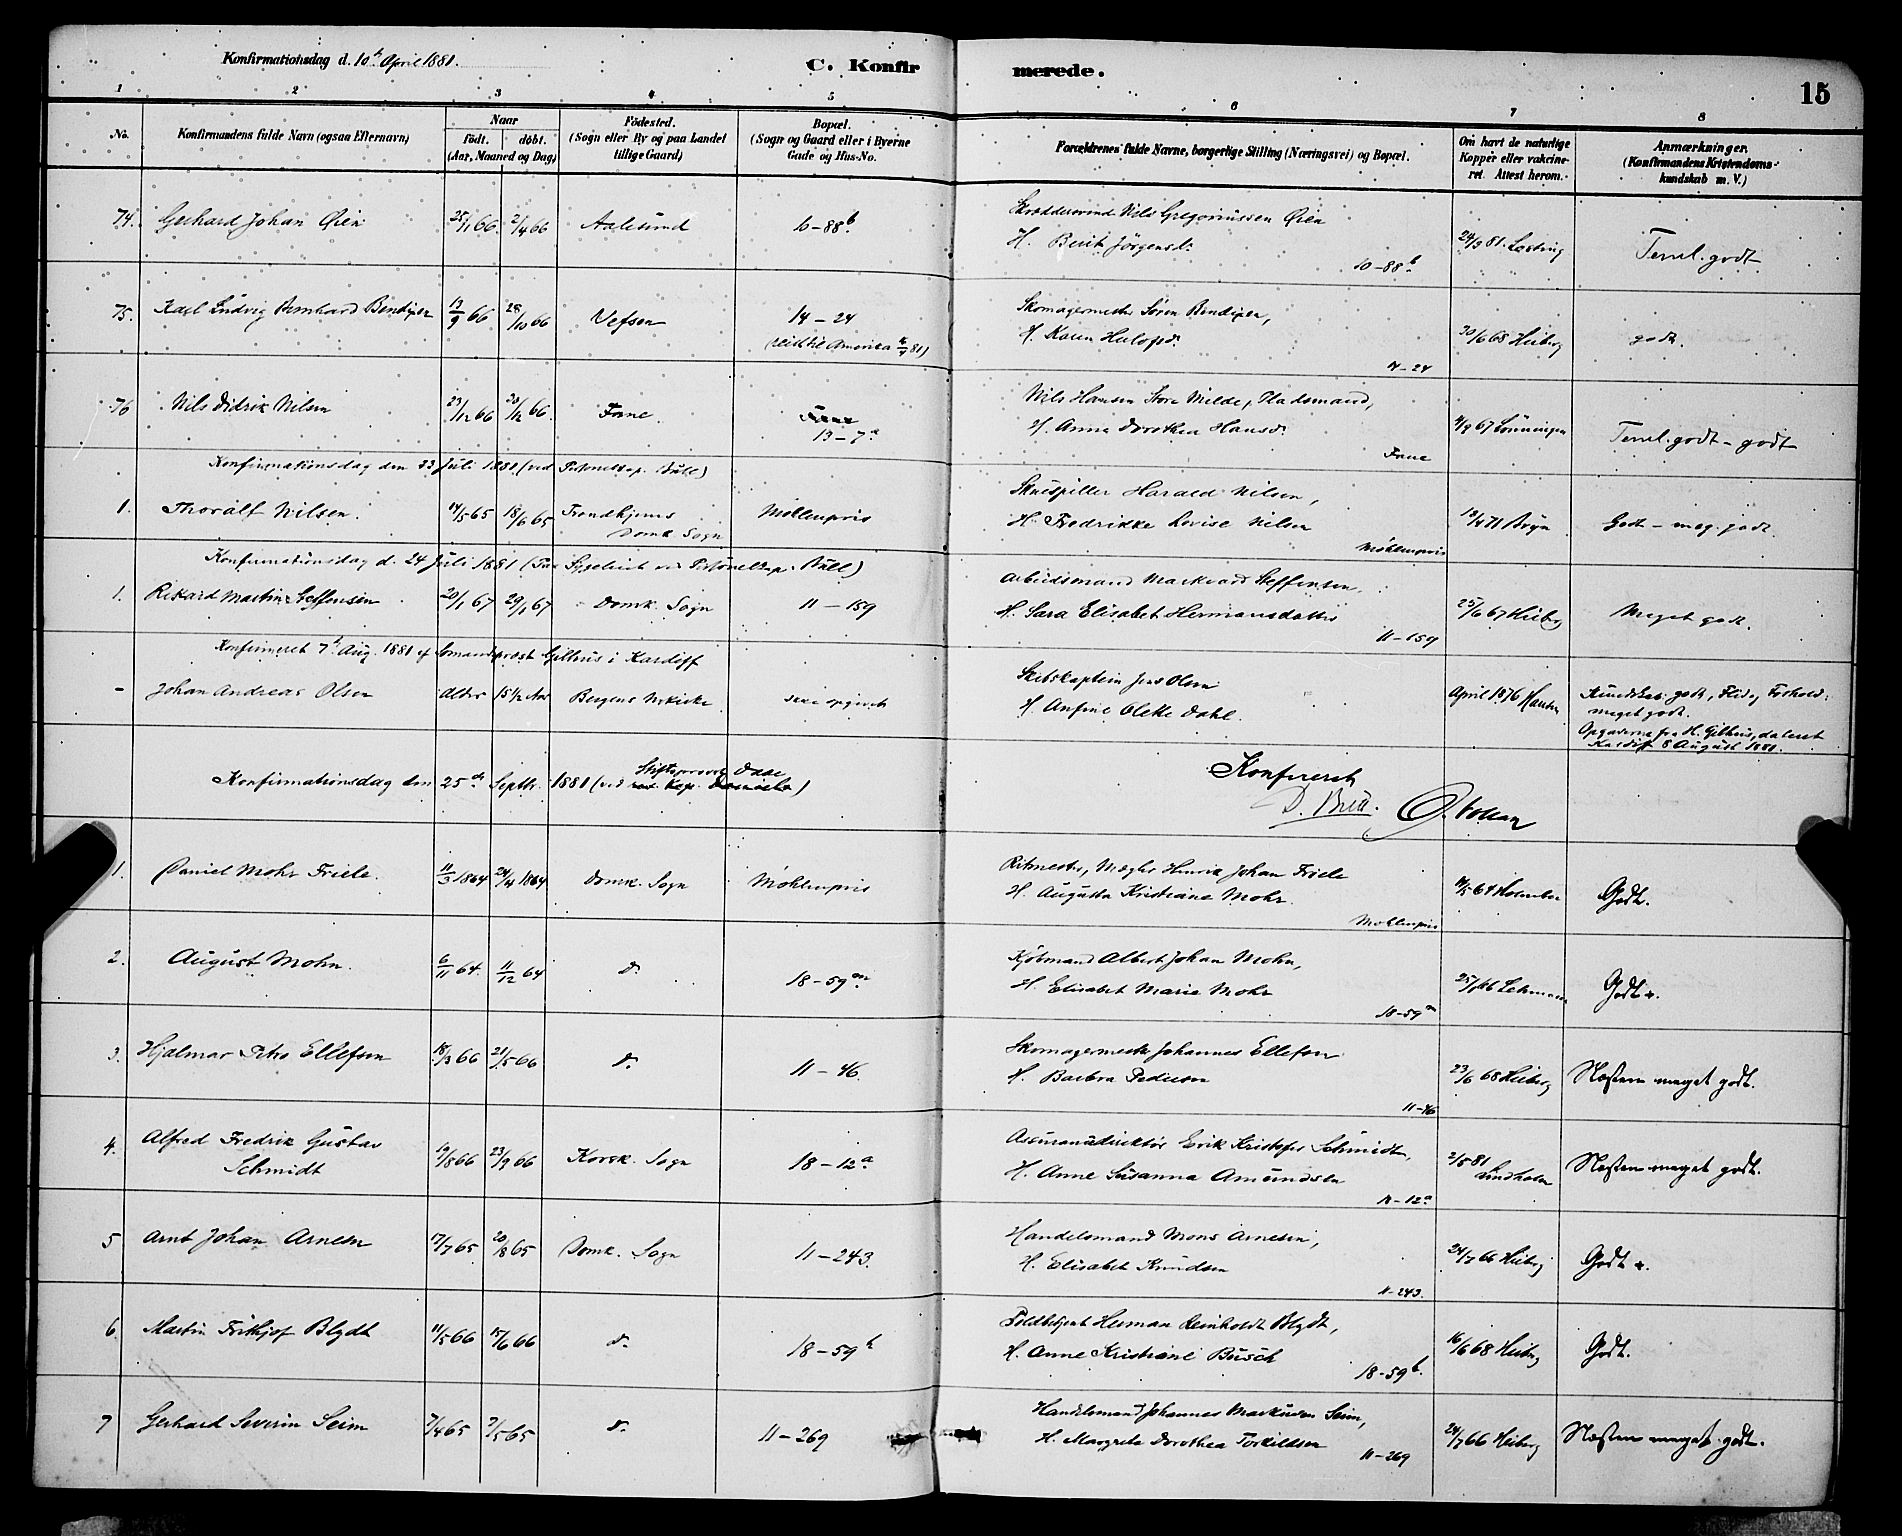 Konfirmationsdag d. 10h April 1881.
C. Konfir
merede.
15
1
2
3
4
5
6
7
8
No.
Konfirmandens fulde Navn (ogsaa Efternavn)
Naar
født.
døbt.
(Aar, Maaned og Dag)
Fødested.
(Sogn eller By og paa Landet
tillige Gaard)
Bopæl.
(Sogn og Gaard eller i Byerne
Gade og Hus-No.
Forældrenes fulde Navne, borgerlige Stilling (Næringsvei) og Bopæl.
Om havt de naturlige
Kopper eller vakcine-
ret. Attest herom.
Anmærkninger.
(Konfirmandens Kristendoms-
kundskab m. V.)
74. Gerhard Johan Øien 25/1 66. 2/4 66 Aalesund 10-88b.
Nils Gregoriussen Øien
H. Berit Jørgensd.
10-88b
24/3 81.
Teml. godt.
75. Karl Ludvig Bernhard Bendixen 13/9 66 28/10 66 Vefsen 14-24
(reist til Amerika 81)
Skomagermester Søren Bendixen,
H. Karen
14-24
30/6 68 Heiberg
godt.
76 Nils Didrik Nilsen 23/12 66 Fane. Fane
13-7a
Nils Hansen Store Milde, Pladsmand,
H. Anna Dorothea Hansd.
Fane
67 Lønningen
Teml. godt - godt
Konfirmationsdag den 23 Juli 1881 (ved Personelkap. Bull)
1. Thoralf Nilsen. 14/5 65 18/6 65 Trondhjems Møhlenpris
Domk. Sogn
Skuespiller Harald Nilsen,
H. Fredrikke Lovise Nilsen
Møhlenpris
71
Godt - meg. godt.
Konfirmationsdag d. 24 Juli 1881 (Paa Sygeleiet ved Personelkap. Bull)
1. Rikard Martin Steffensen 20/1 67 29/1 67 Domk. Sogn 11-159
Arbeidsmand Markvard Steffensen,
H. Sara Elisabet Hermansdatter
11-159
25/6 67 Heiberg
Meget godt.
Konfirmeret 7h Aug. 1881 af Sømandsprest Gilhus i Kardiff
- Johan Andreas Olsen Alder 15 1/2 Aar Bergens Nykirke opgivet
Skibskaptein Jens Olsen
H. Anfine Olette Dahl.
April 1876 Hansen
Kundskab: godt, Flid og Forhold:
meget godt.
Opgaverne fra H. Gilhus, dateret
Kardiff 8 August 1881.
Konfirmationsdag den 25de Septbr. 1881 (ved Stiftsprovst Daae)
Konfereret
D. Bull.
1. Daniel Mohr Friele. 11/3 1864 24/4 1864 Domk. Sogn Møhlenpris
Ritmester, Mægler Henrik Johan Friele
H. Augusta Kristiane Mohr.
Møhlenpris
Godt.
2. August Mohn. 6/11 64. 11/12 64 d. 18-59m
Kjøbmand Albert Johan Mohn,
H. Elisabet Marie Mohr
18-59m
66 Lehmann
Godt +.
3. Hjalmar Petro Ellefsen 18/3 66 21/5 66 d. 11-46.
Skomagermester Johannes Ellefsen
H. Barbra Pedersen
11-46
23/6 68 Heiberg
Næsten meget godt.
4. Alfred Fredrik Gustav
Schmidt 19/8 66 23/9 66 Korsk. Sogn 18-12a
Assurancedirektør Erik Kristofer Schmidt,
H. Anne Susanna Amundsen
18-12a
2/5 81
Lindholm
Næsten meget godt.
5 Arnt Johan Arnesen 17/7 65 20/8 65 Domk. Sogn 11-243.
Handelsmand Mons Arnesen,
H. Elisabet Knudsen
11-243.
24/7 66 Heiberg
Godt +.
6. Martin Frithjof Blydt 11/5 66 17/6 66 d. 18-59b
Toldbetjent Herman Reinholdt Blydt,
H. Anne Kristiane Busch
18-59b.
16/6 68 Heiberg
Godt.
7 Gerhard Severin Seim 7/4 65 7/5 65 d. 11-269
Handelsmand Johannes Markusen Seim,
H. Margrete Dorothea Torkildsen
11-269
24/7 66 Heiberg
Næsten meget godt.